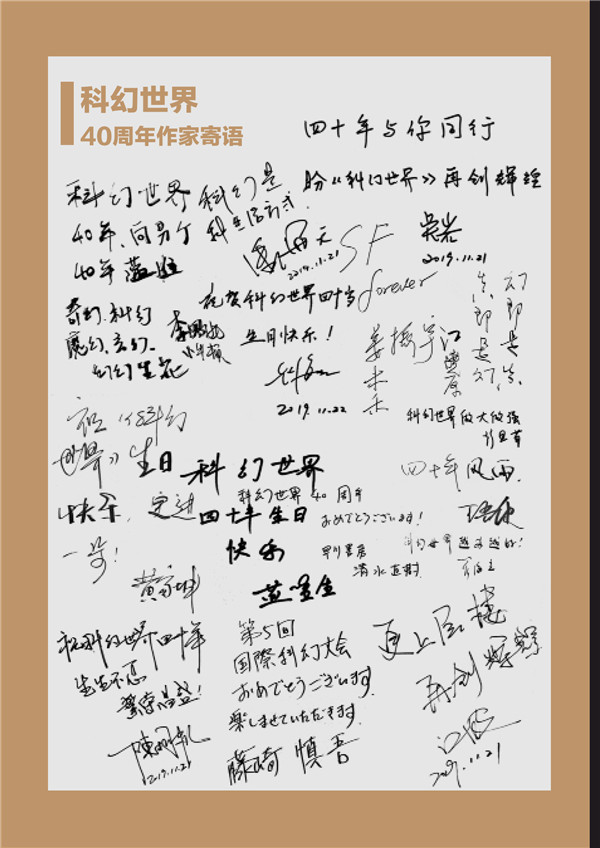 科幻世界
40周年作家寄语
四十年与你同行
盼《科幻世界》再创辉煌
吴岩
2019.11.21
科幻世界
40年、向另个
40年
科幻是
2019.11.21
SF
forever
祝贺科幻世界四十岁
生日快乐！
2019.11.22
奇幻、科幻
魔幻、玄幻、
幻幻生花
姜振宇
幻即是真
真即是幻
科幻世界做大做强
祝《科幻
世界》生日
快乐，
一步！
黄家坤
科幻世界
四十年生日
快乐
蓝星生
科幻世界 40 周年
おめでとうございます！
早川書房
清水直樹
四十年风雨
科幻世界越来越好！
祝科幻世界四十年
生生不息
繁荣昌盛！
2019.11.21
第5回
国際科幻大会
おめでとうございます
楽しませていただきます
藤崎 慎吾
更上层楼
再创辉煌
江波
2019.11.21